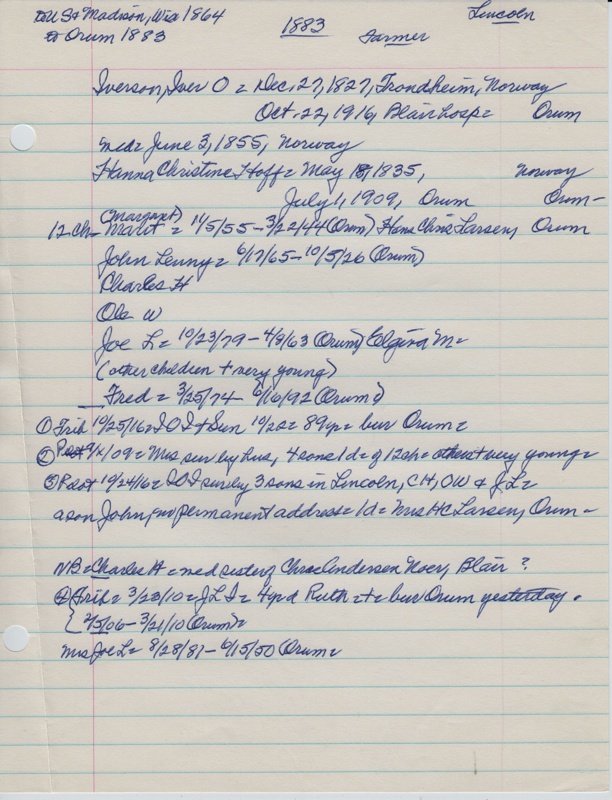 to US & Madison, Wis 1864
to Orum 1883
1883
Farmer
Lincoln
Iverson, Iver O = Dec. 27, 1827, Trondheim, Norway
Oct. 22, 1916, Blair hosp = Orum
med = June 3, 1855, Norway
Hanna Christine Hoff = May 18, 1835, Norway
July 1, 1909, Orum Orum -
(Margaret)
12 ch - Marit = 11/5/55 - 3/22/44 (Orum) Hans Chris Larsen, Orum
John Lenny = 6/17/65 - 10/5/26 (Orum)
Charles H
Ole W
Joe L = 10/23/79 - 4/8/63 (Orum) Elgina M =
(other children + very young)
Fred = 3/25/74 - 6/16/92 (Orum)
① Trib 10/25/16 = I O I + Sun 10/22 = 89 yr = bur Orum =
② Post 7/ /09 = Mrs sur by hus, 4 sons 1 d = of 12 ch = others + very young =
③ Post 10/24/16 = I O I sur by 3 sons in Lincoln, CH, OW & JL =
a son John, no permanent address = 1 d = Mrs HC Larsen, Orum -
NB = Charles H = med sister of Chras Andersen Koer, Blair ?
④ Trib = 3/23/10 = J L I = 4 yr d Ruth = + = bur Orum yesterday.
{ 3/5/06 - 3/21/10 (Orum) =
Mrs Joe L = 8/28/81 - 6/15/50 (Orum =